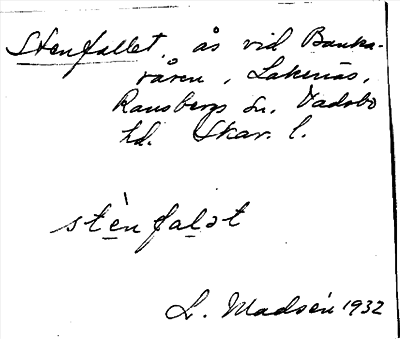 Stenfallet, ås vid Banka-
råren, Lakenäs,
Ransbergs sn. Vadsbo
hd. Skar. l.
stènfalət
L. Madsén 1932